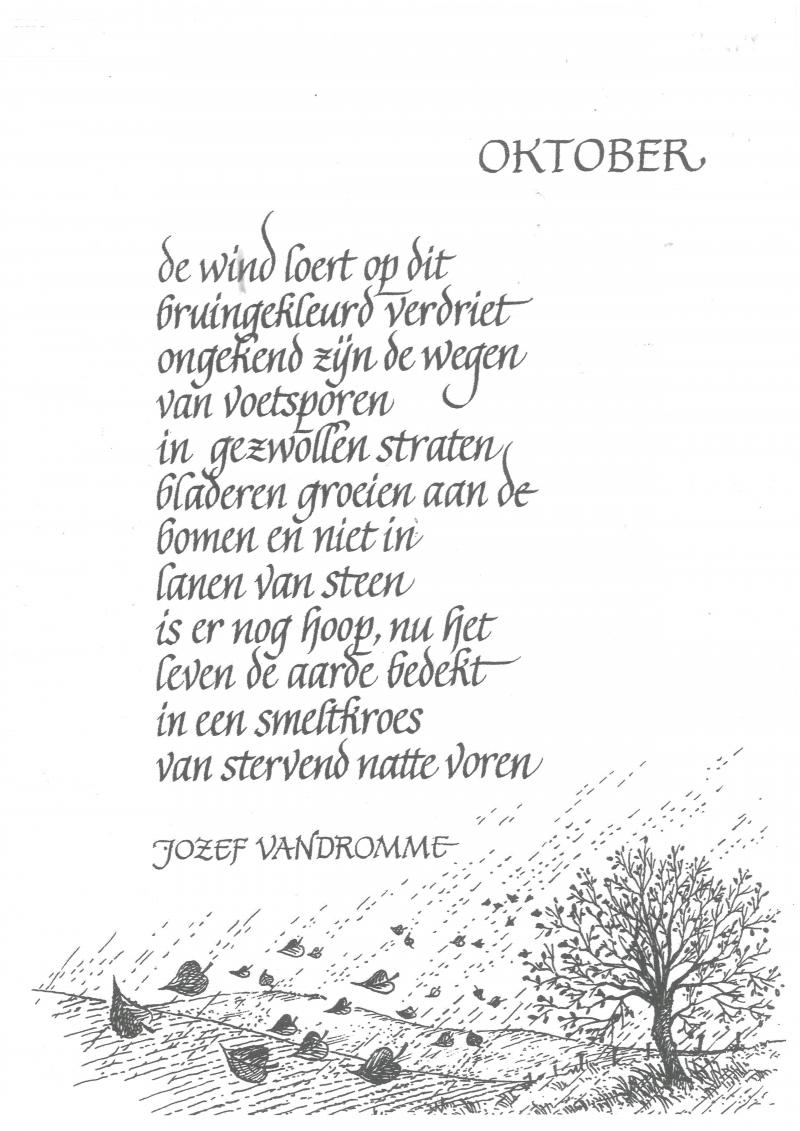 OKTOBER
de wind loert op dit
bruingekleurd verdriet
ongekend zijn de wegen
van voetsporen
in gezwollen straten
bladeren groeien aan de
bomen en niet in
lanen van steen
is er nog hoop, nu het
leven de aarde bedekt
in een smeltkroes
van stervend natte voren
JOZEF VANDROMME